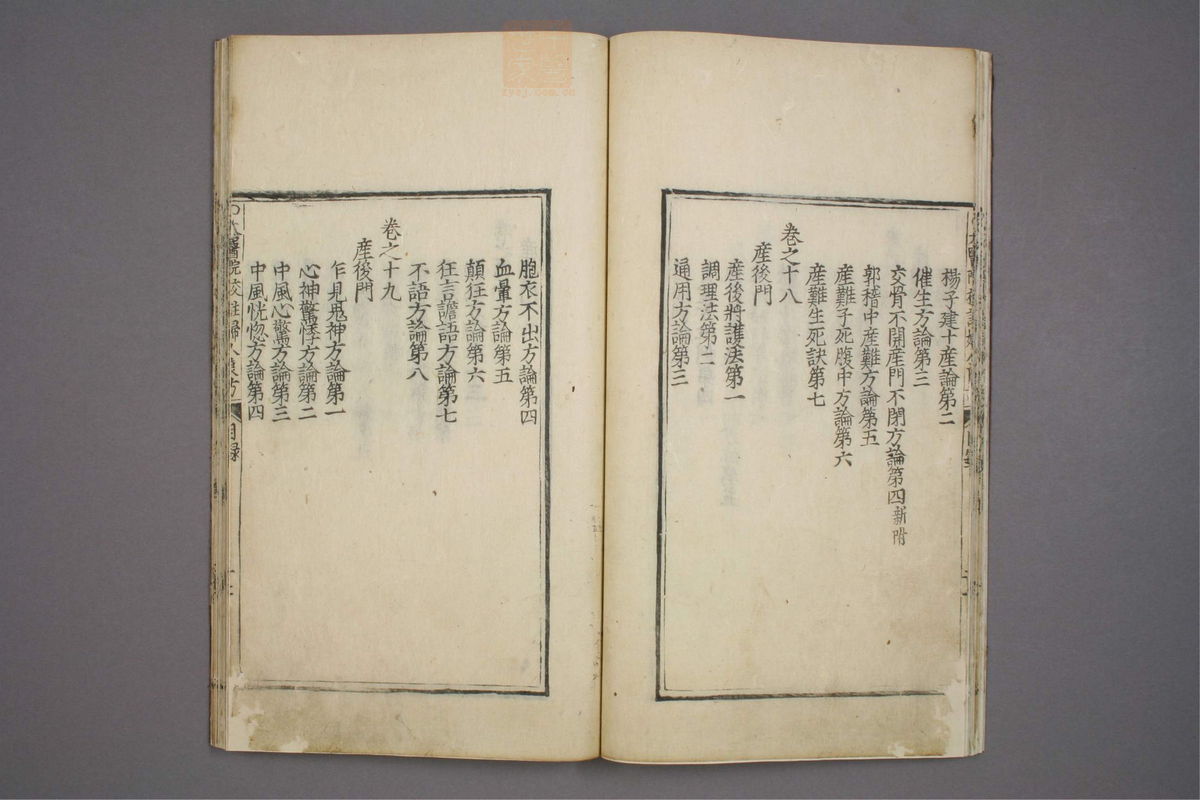 楊子建十産論第二
催生方論第三
交骨不開産門不閉方論第四新附
郭稽中産難方論第五
産難子死腹中方論第六
産難生死訣第七
卷之十八
産後門
産後將護法第一
調理法第二
通用方論第三
胞衣不出方論第四
血暈方論第五
顛狂方論第六
狂言譫語方論第七
不語方論第八
卷之十九
産後門
乍見鬼神方論第一
心神驚悸方論第二
中風心驚方論第三
中風恍惚方論第四
太醫院校註婦人良方
目録
zycj.com.cn